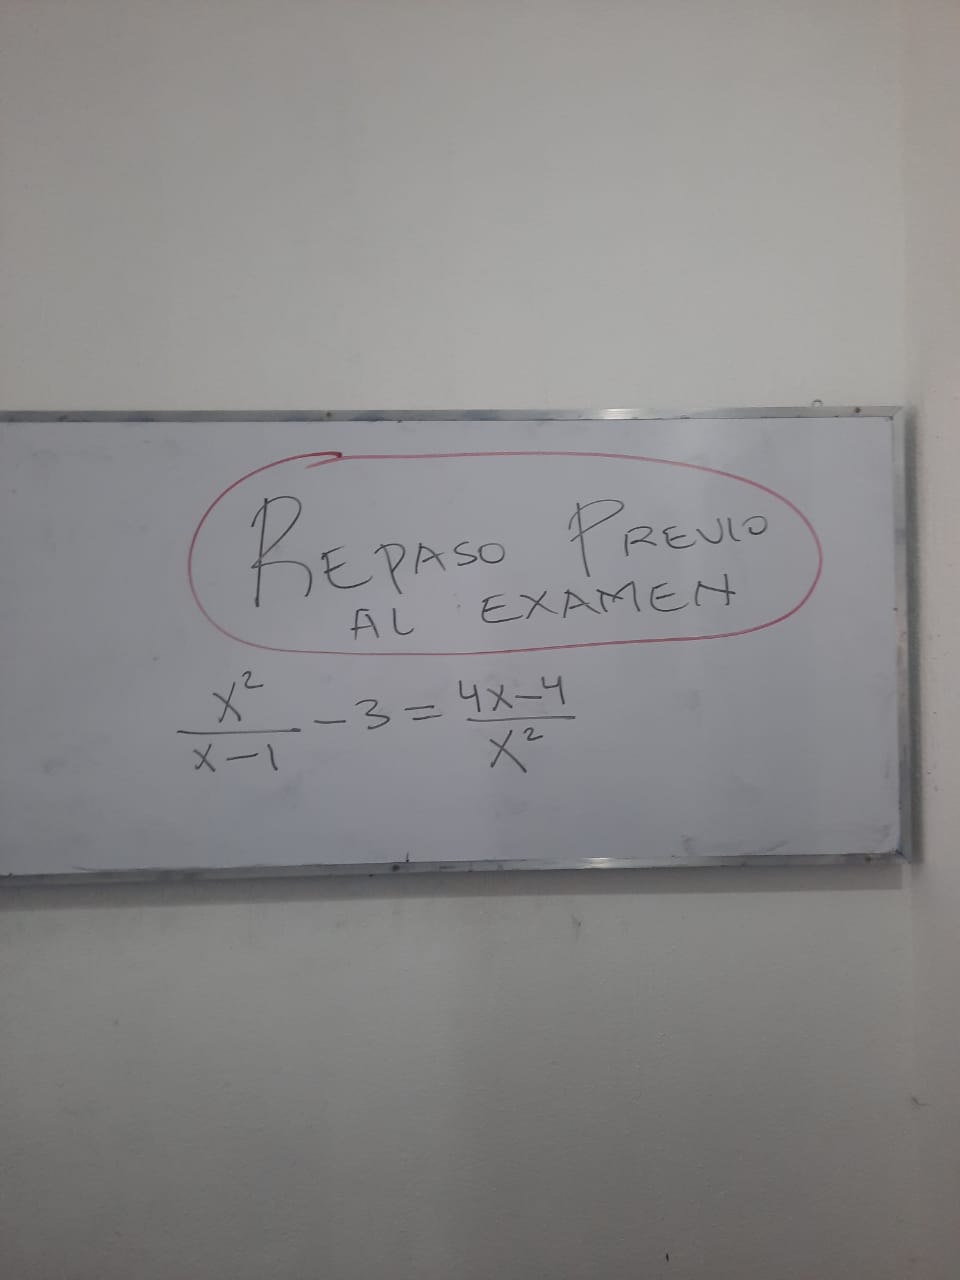 REPASO PREVIO
AL EXAMEN
x²/(x-1) - 3 = (4x-4)/x²